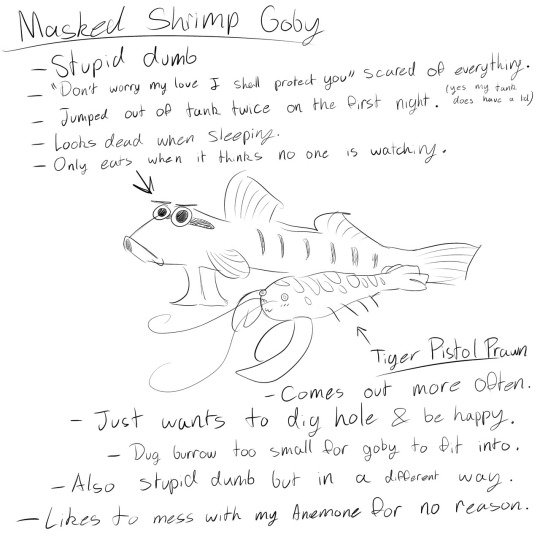 Masked Shrimp Goby
- Stupid dumb
- "Don't worry my love I shall protect you" scared of everything.
- Jumped out of tank twice on the first night. (yes my tank
does have a lid)
- Looks dead when sleeping.
- Only eats when it thinks no one is watching.
Tiger Pistol Prawn
- Comes out more often.
- Just wants to dig hole & be happy.
- Dug burrow too small for goby to fit into.
- Also stupid dumb but in a different way.
- Likes to mess with my Anemone for no reason.